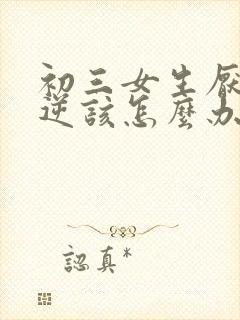 初三女生厭
逆該怎麼办
認真*